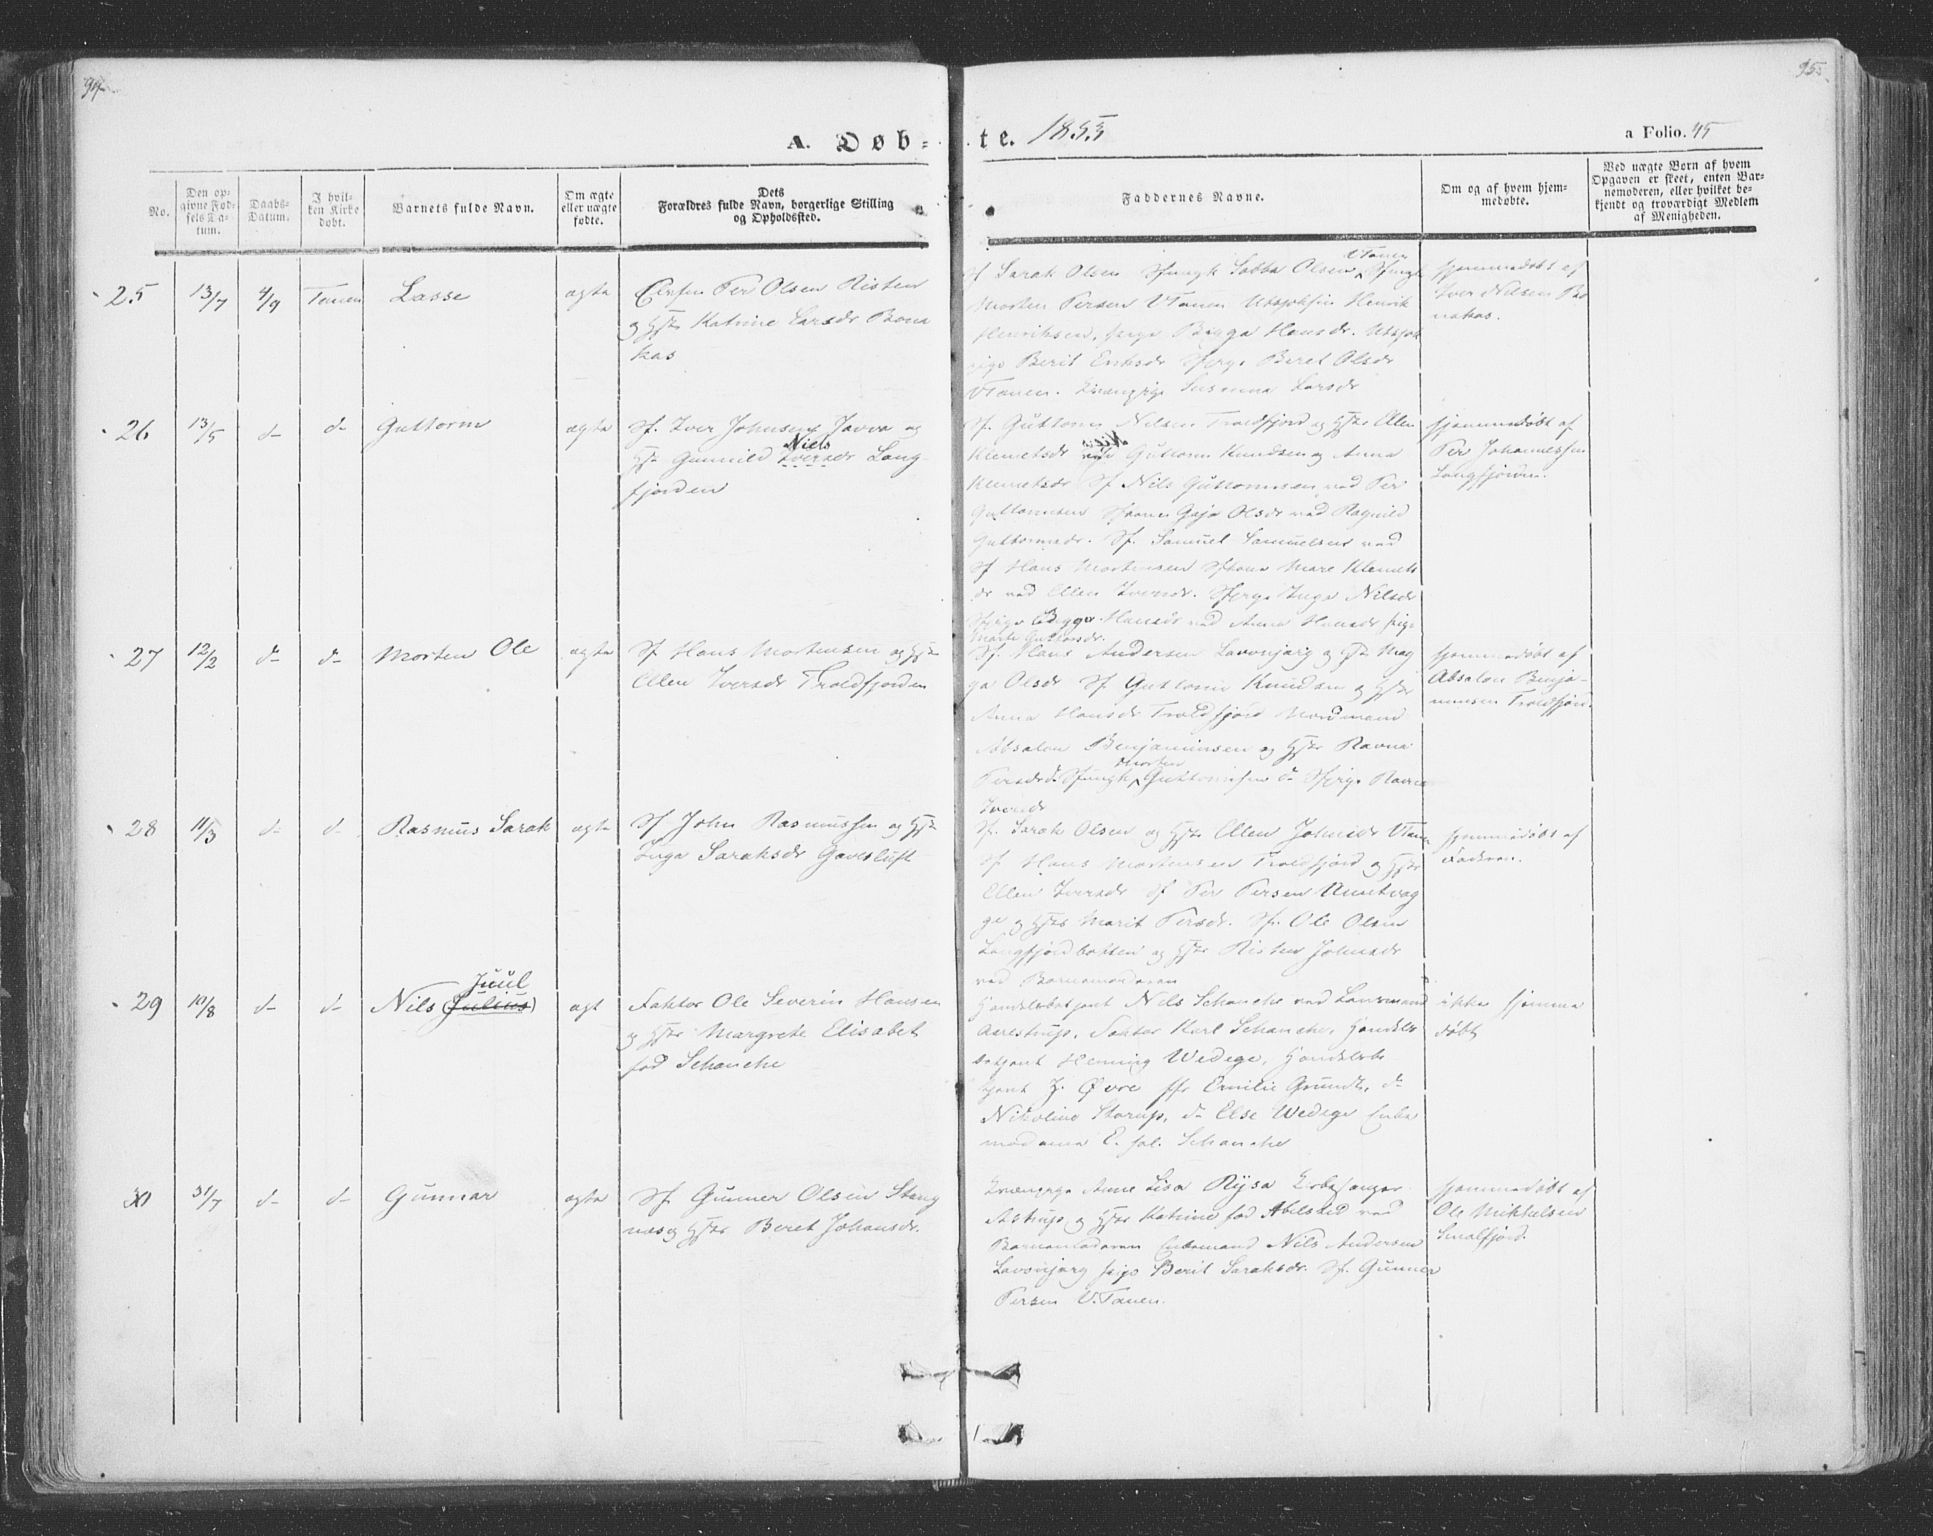 94
95
A. Døb-te. 1853
a Folio. 45
No.
Den opgivne Fødsels Datum.
Daabs-Datum.
I hvilken Kirke døbt.
Barnets fulde Navn.
Om ægte eller uægte fødte.
Dets Forældres fulde Navn, borgerlige Stilling og Opholdssted.
Faddernes Navne.
Om og af hvem hjemmedøbte.
Ved uægte Børn af hvem Opgaven er skeet, enten Barnemoderen, eller hvilket bekjendt og troværdigt Medlem af Menigheden.
25 13/7 4/9 Tanen Lasse ægte
Per Olsen Risten
og Hstr Katrine Larsdr Bona
kas
Sf Sarak Olsen Sfungk Sabba Olsen VTanen Sfungk
Morten Persen VTanen Utsjoksin Henrik
Henriksen, Pige Bigga Hansdr. Utsjok
pige Berit Eriksdr Sfpige Beret Olsdr
VTanen. Kvænpige Susanna Larsdr
hjemmedøbt af
Iver Nilsen Bo
nakas.
26 13/5 d- d- Guttorm ægte
Sf. Iver Johnsen Javva og
Hstr Gunnild Iversdr Niels Lang-
fjorden
Sf. Guttorm Nilsen Troldfjord og Hstr Ellen
Klemetsdr Guttorm Knudsen og Anna
Klemetsdr Sf Nils Guttormsen ved Per
Guttormsen Sfkone Gaja Olsdr ved Ragnild
Guttormsdr. Sf. Samuel Samuelsen ved
Sf Hans Mortensen Sfkone Mare Klemets
dr ved Ellen Iversdr. Sfpige Inga Nilsdr
Sfpige Bigga Hansdr ved Anna Hansdr pige
Marit Guttormsdr.
hjemmedøbt af
Per Johannessen
Langfjorden.
27 12/2 d- d- Morten Ole ægte
Sf Hans Mortensen og Hstr
Ellen Iversdr Troldfjorden
Sf. Hans Andersen Lavvonjarg og Hstr Mag
ga Olsdr Sf Guttorm Knudsen og Hstr
Anna Hansdr Troldfjord Nordmand
Absalon Benjaminsen og Hstr Ravna
Persdr d. Sfungk Morten Guttormsen d- Sfpige Ravna
Iversdr
hjemmedøbt af
Absalon Benja-
minsen Troldfjord.
28 11/3 d- d- Rasmus Sarak ægte
Sf John Rasmussen og Hstr
Inga Saraksdr Gavesluft
Sf. Sarak Olsen og Hstr Ellen Johnsdr VTanen
Sf Hans Mortensen Troldfjord og Hstr
Ellen Iversdr Sf Per Persen
ge og Hstr Marit Persdr. Sf. Ole Olsen
Langfjordbotten og Hstr Risten Johnsdr
ved Barnemoderen
hjemmedøbt af
Faderen.
29 10/8 d- d- Nils (Julius) Juul ægt
Faktor Ole Severin Hansen
og Hstr Margrete Elisabet
fød Schanche
Handelsbetjent Nils Schanche ved Lensmand
Aarestrup, Faktor Karl Schanche, Handels
betjent Heming Wedege, Handelsbe
tjent J. Øvre jfr Emilie Grundt, d-
Nikoline Storup, d- Else Wedege Enke
madame E. sal. Schanche
ikke hjemme
døbt
30 31/7 d- d- Gunnar ægte
Sf. Gunner Olsen Stang
nes og Hstr Beret Johansdr.
Kvænpige Anne Lisa Rysa Kirkesanger
Astrup og Hstr Katrine fød Abelsted ved
Barnefaderen Enkemand Nils Andersen
Lavvonjarg pige Berit Saraksdr. Sf. Gunner
Persen V. Tanen.
hjemmedøbt af
Ole Mikkelsen
Smalfjord.